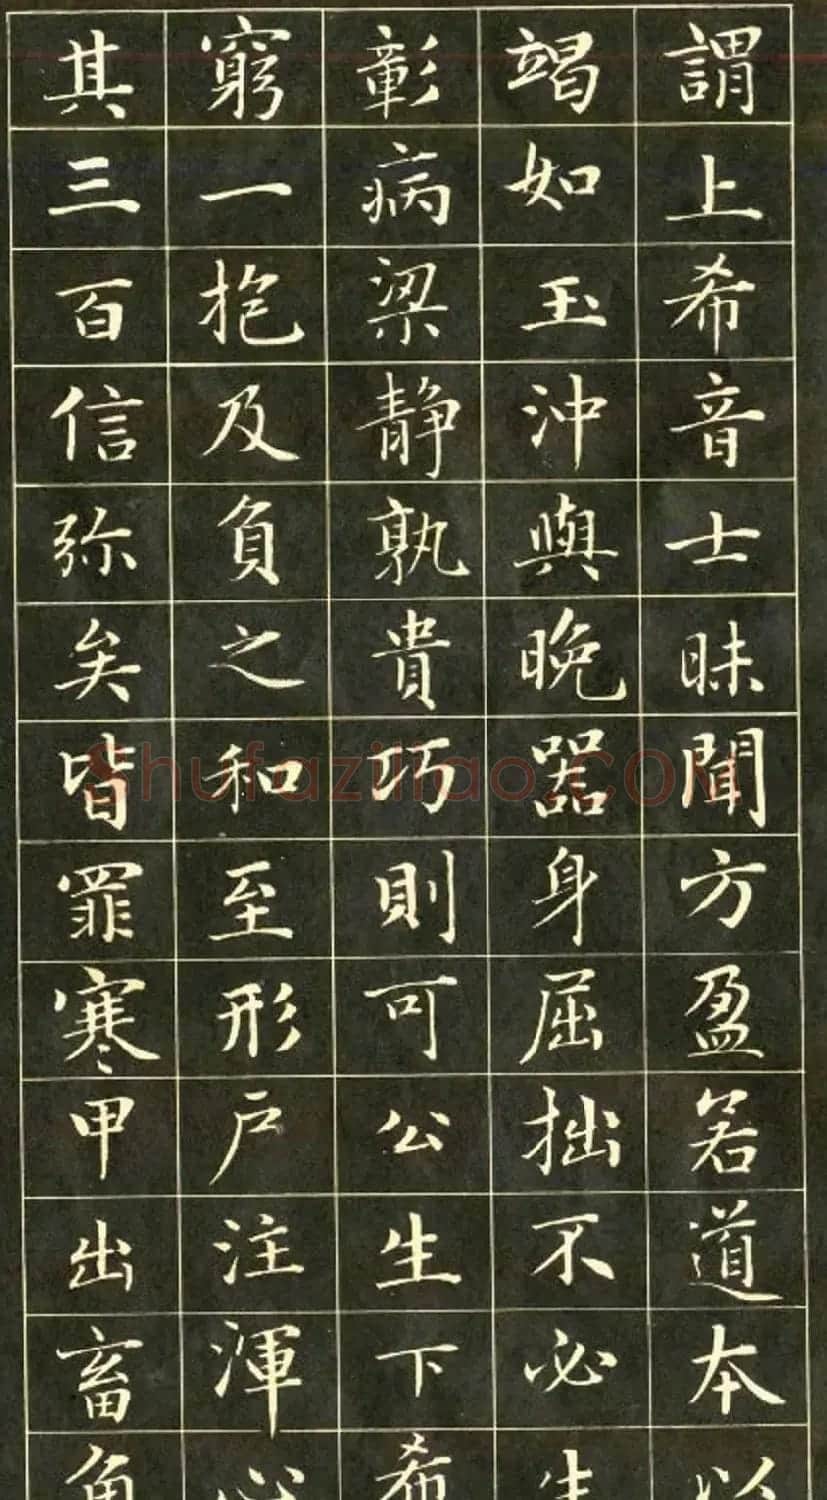 謂上希音士昧聞方盈若道本以
竭如玉沖與晚器身屈拙不必生
彰病梁静孰貴巧則可公生下希
窮一抱及負之和至形戶注渾心
其三百信弥矣皆罪寒甲出畜角
Shufaziliao.COM